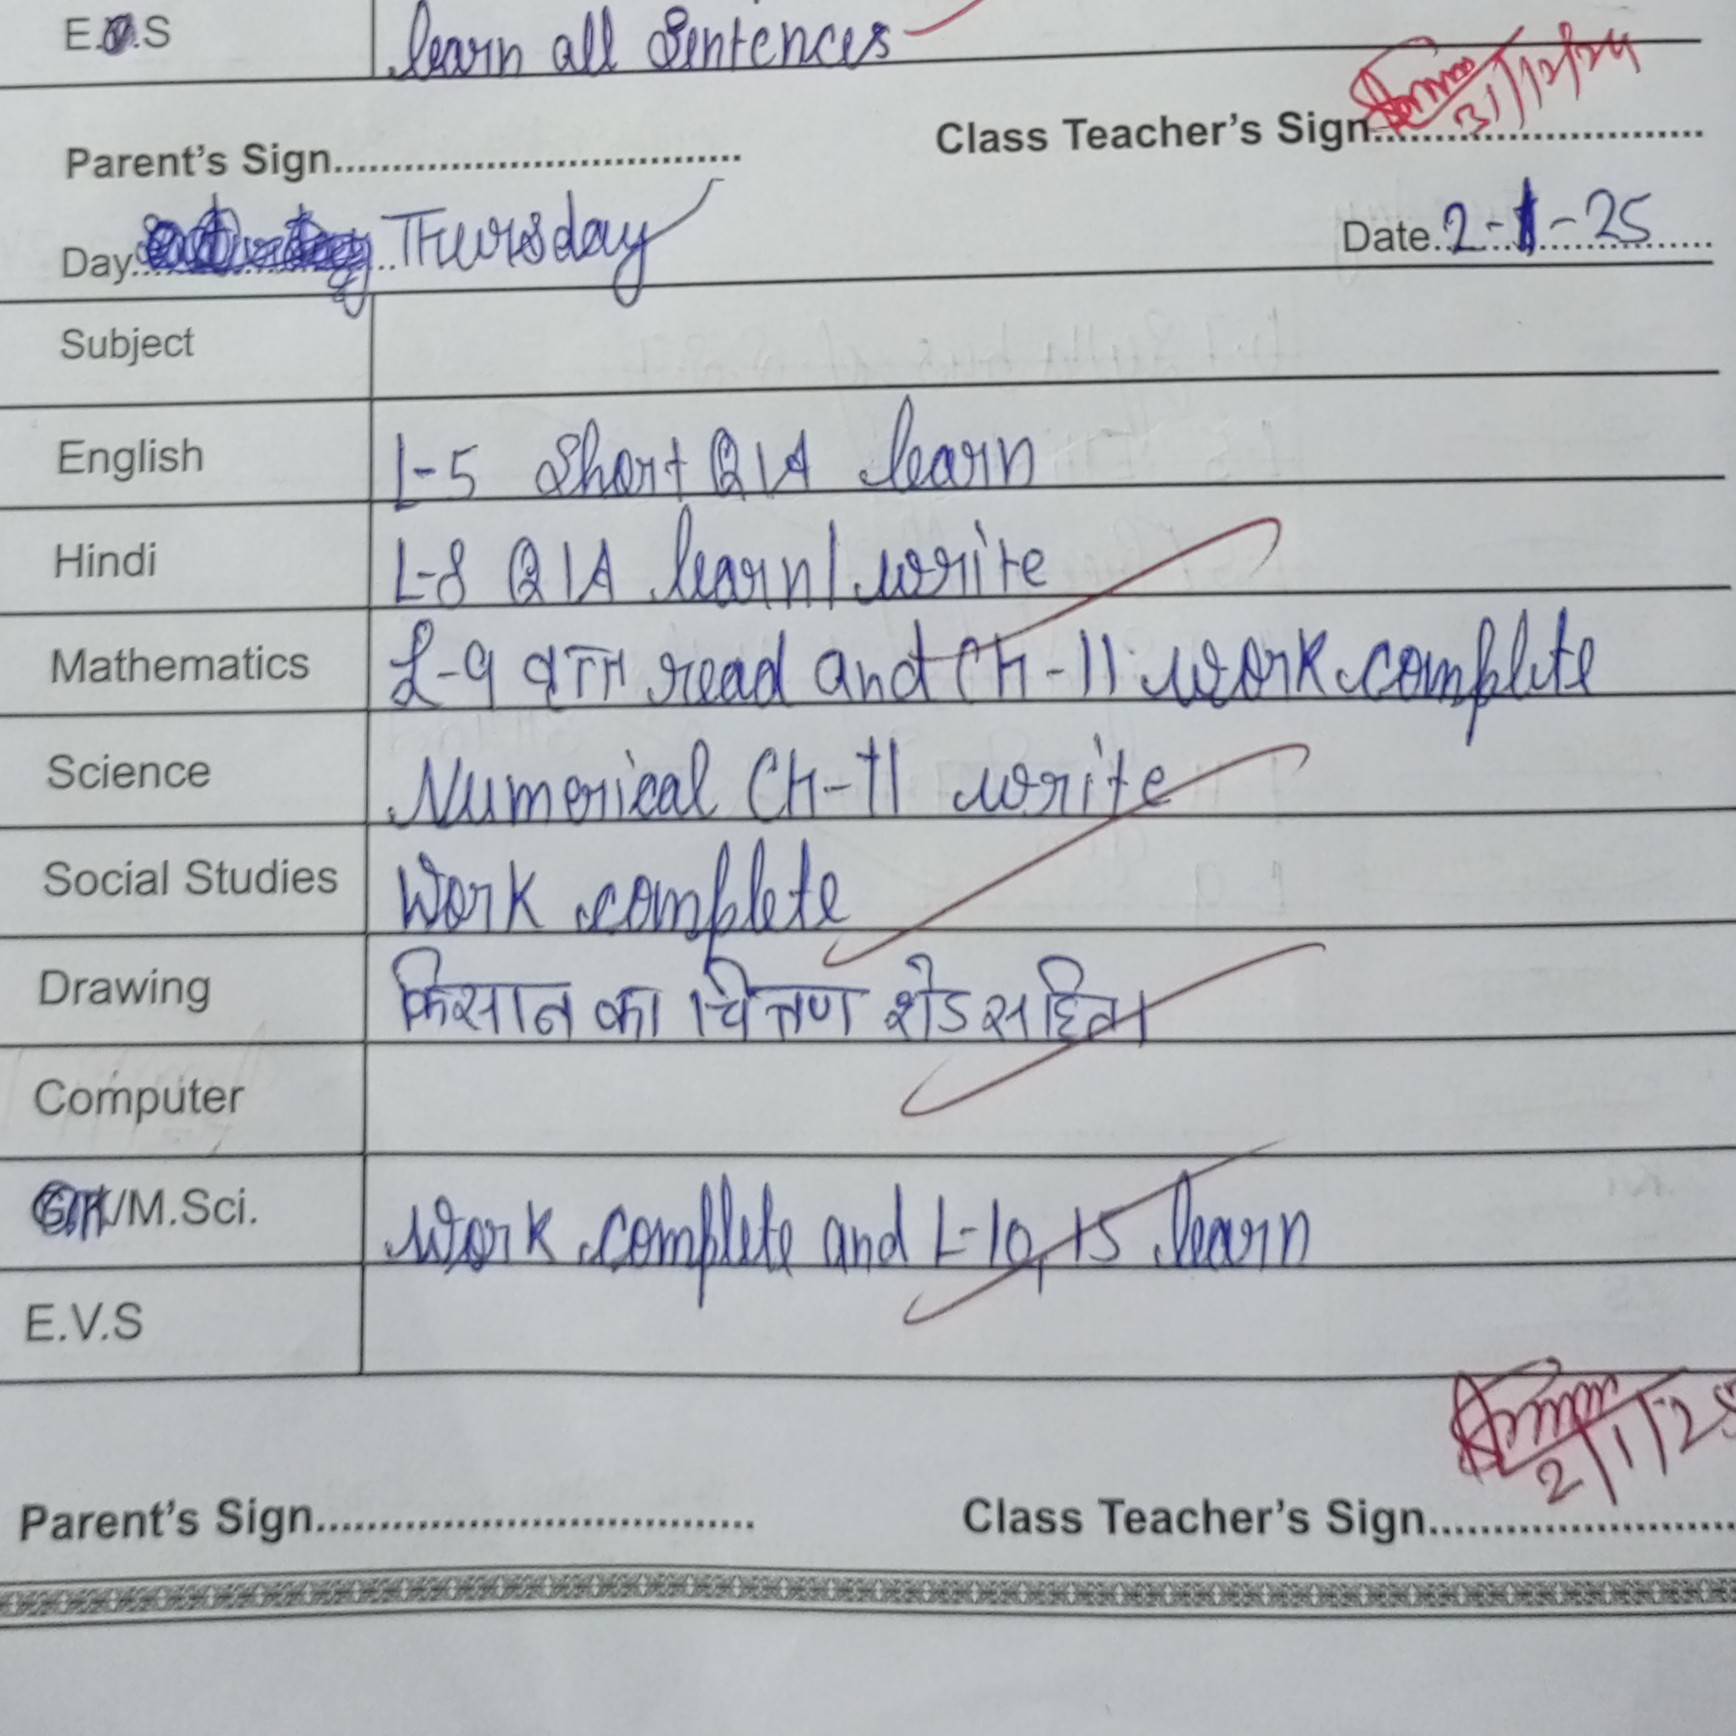 E.V.S learn all Sentences
Parent's Sign................................ Class Teacher's Sign................................ 31/12/24
Day.......... Thursday Date. 2-1-25
Subject
English L-5 Short Q/A learn
Hindi L-8 Q/A learn/write
Mathematics L-9 read and Ch-11 work complete
Science Numerical Ch-11 write
Social Studies Work complete
Drawing किसान का चित्रण शेड सहित।
Computer
GK/M.Sci. work complete and L-10, 15 learn
E.V.S
2/1/25
Parent's Sign................................ Class Teacher's Sign................................